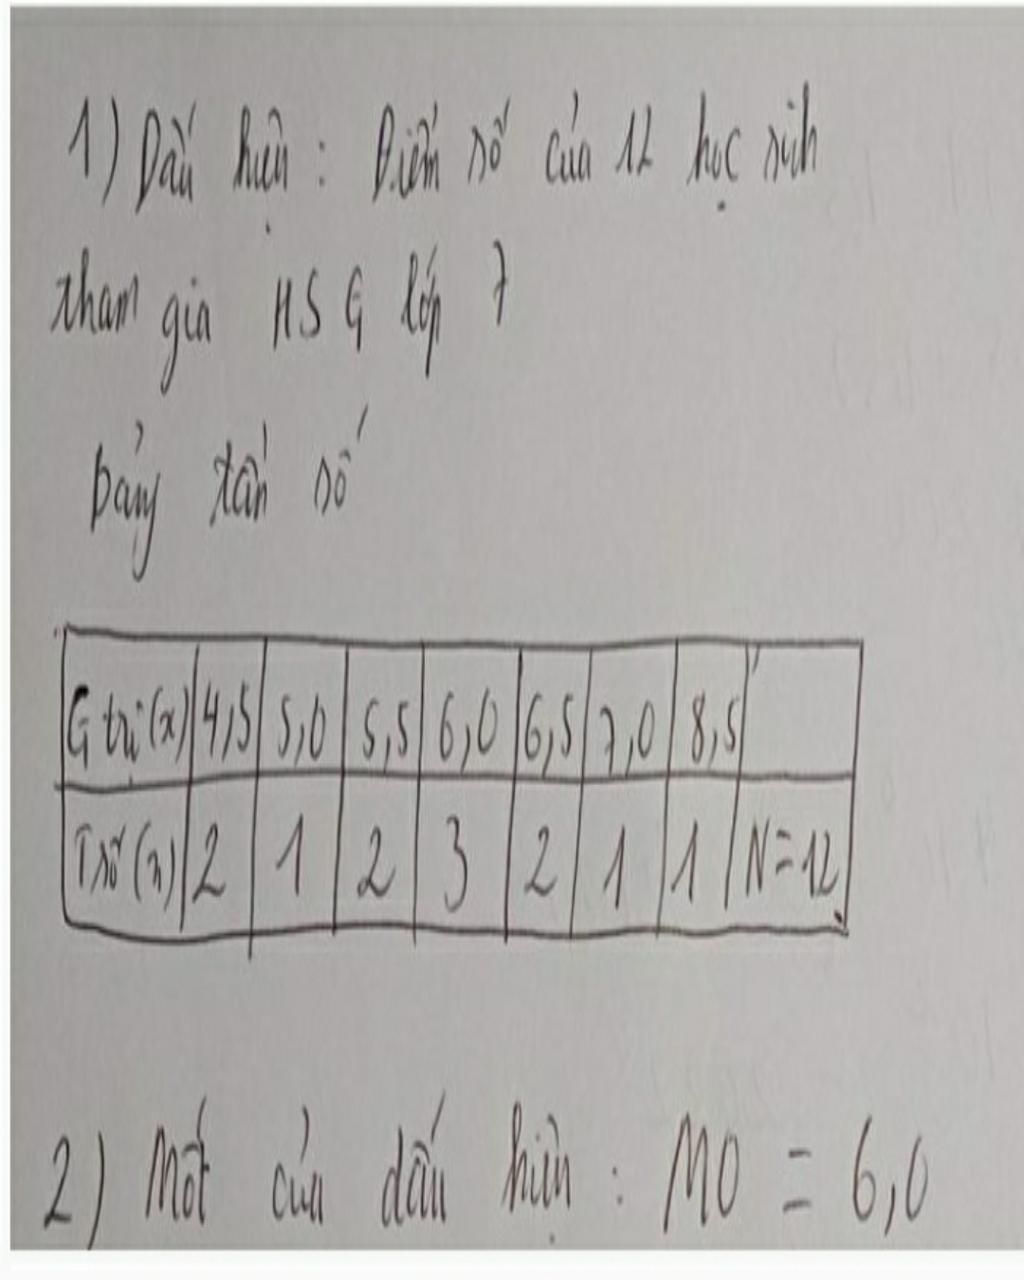 1) Dấu hiệu : Điểm số của 12 học sinh
tham gia HSG lớp 7
Bảng tần số
G trị (x) 4,5 5,0 5,5 6,0 6,5 7,0 8,5
T số (n) 2 1 2 3 2 1 1 N=12
2) Mốt của dấu hiệu : M0 = 6,0